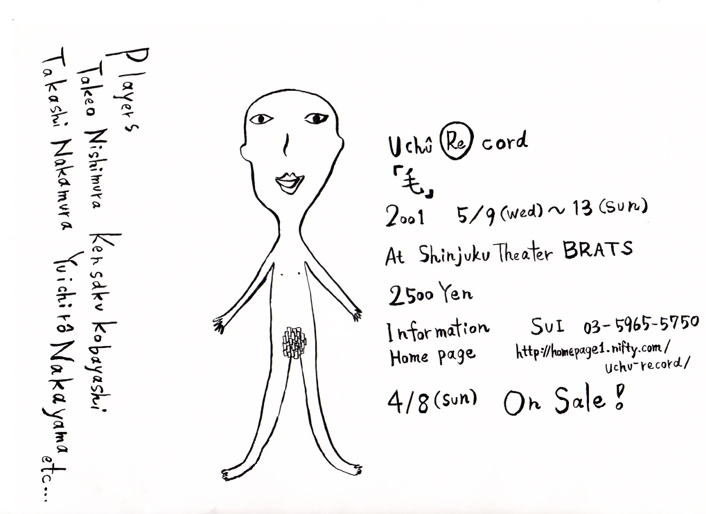 Players
Takeo Nishimura Kensaku Kobayashi
Takashi Nakamura Yuichiro Nakayama etc...
Uchû Record
「毛」
2001 5/9(wed)~13(sun)
At Shinjuku Theater BRATS
2500 Yen
Information SUI 03-5965-5750
Home page http://homepage1.nifty.com/
uchu-record/
4/8(sun) On Sale!